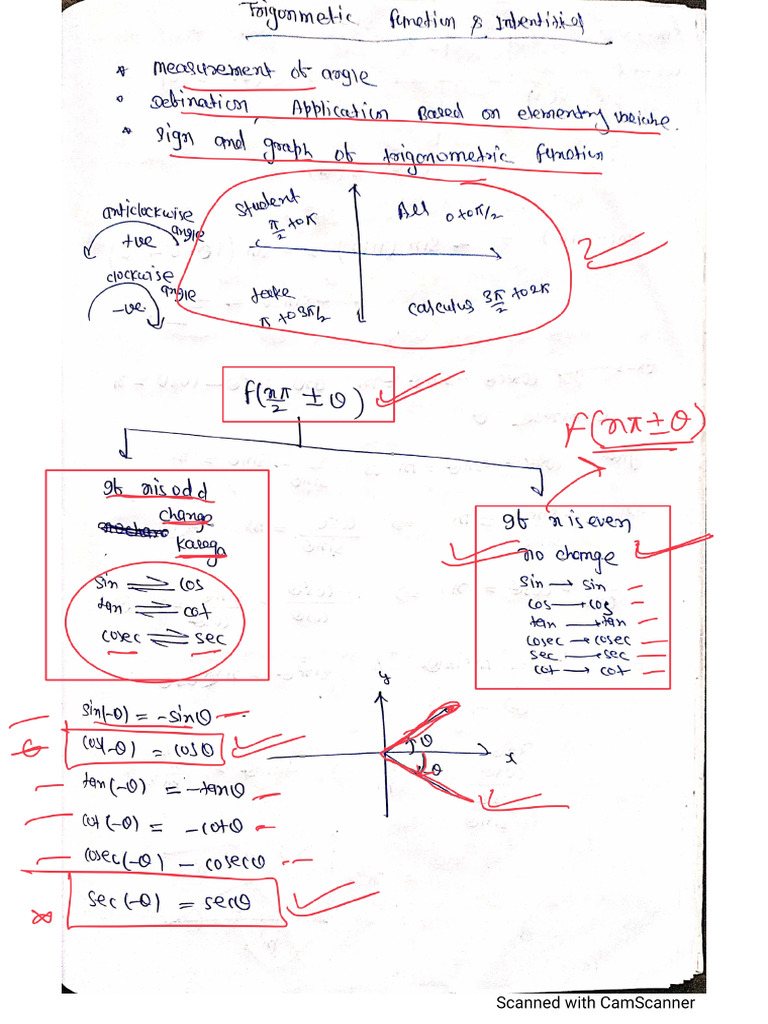 Trigonmetic function & Indentities
* measurement of angle
• Defination, Application Based on elementry
* Sign and graph of trigonometric function
anticlockwise angle
+ve
clockwise angle
-ve
Student
π/2 to π
All 0 to π/2
take
π to 3π/2
calculus 3π/2 to 2π
2
f(nπ/2 ± θ)
f(nπ ± θ)
If n is odd
change
karega
sin ⇌ cos
tan ⇌ cot
cosec ⇌ sec
If n is even
no change
sin → sin
cos → cos
tan → tan
cosec → cosec
sec → sec
cot → cot
sin(-θ) = -sinθ
cos(-θ) = cosθ
tan(-θ) = -tanθ
cot(-θ) = -cotθ
cosec(-θ) - cosecθ
sec(-θ) = secθ
y
x
θ
-θ
Scanned with CamScanner